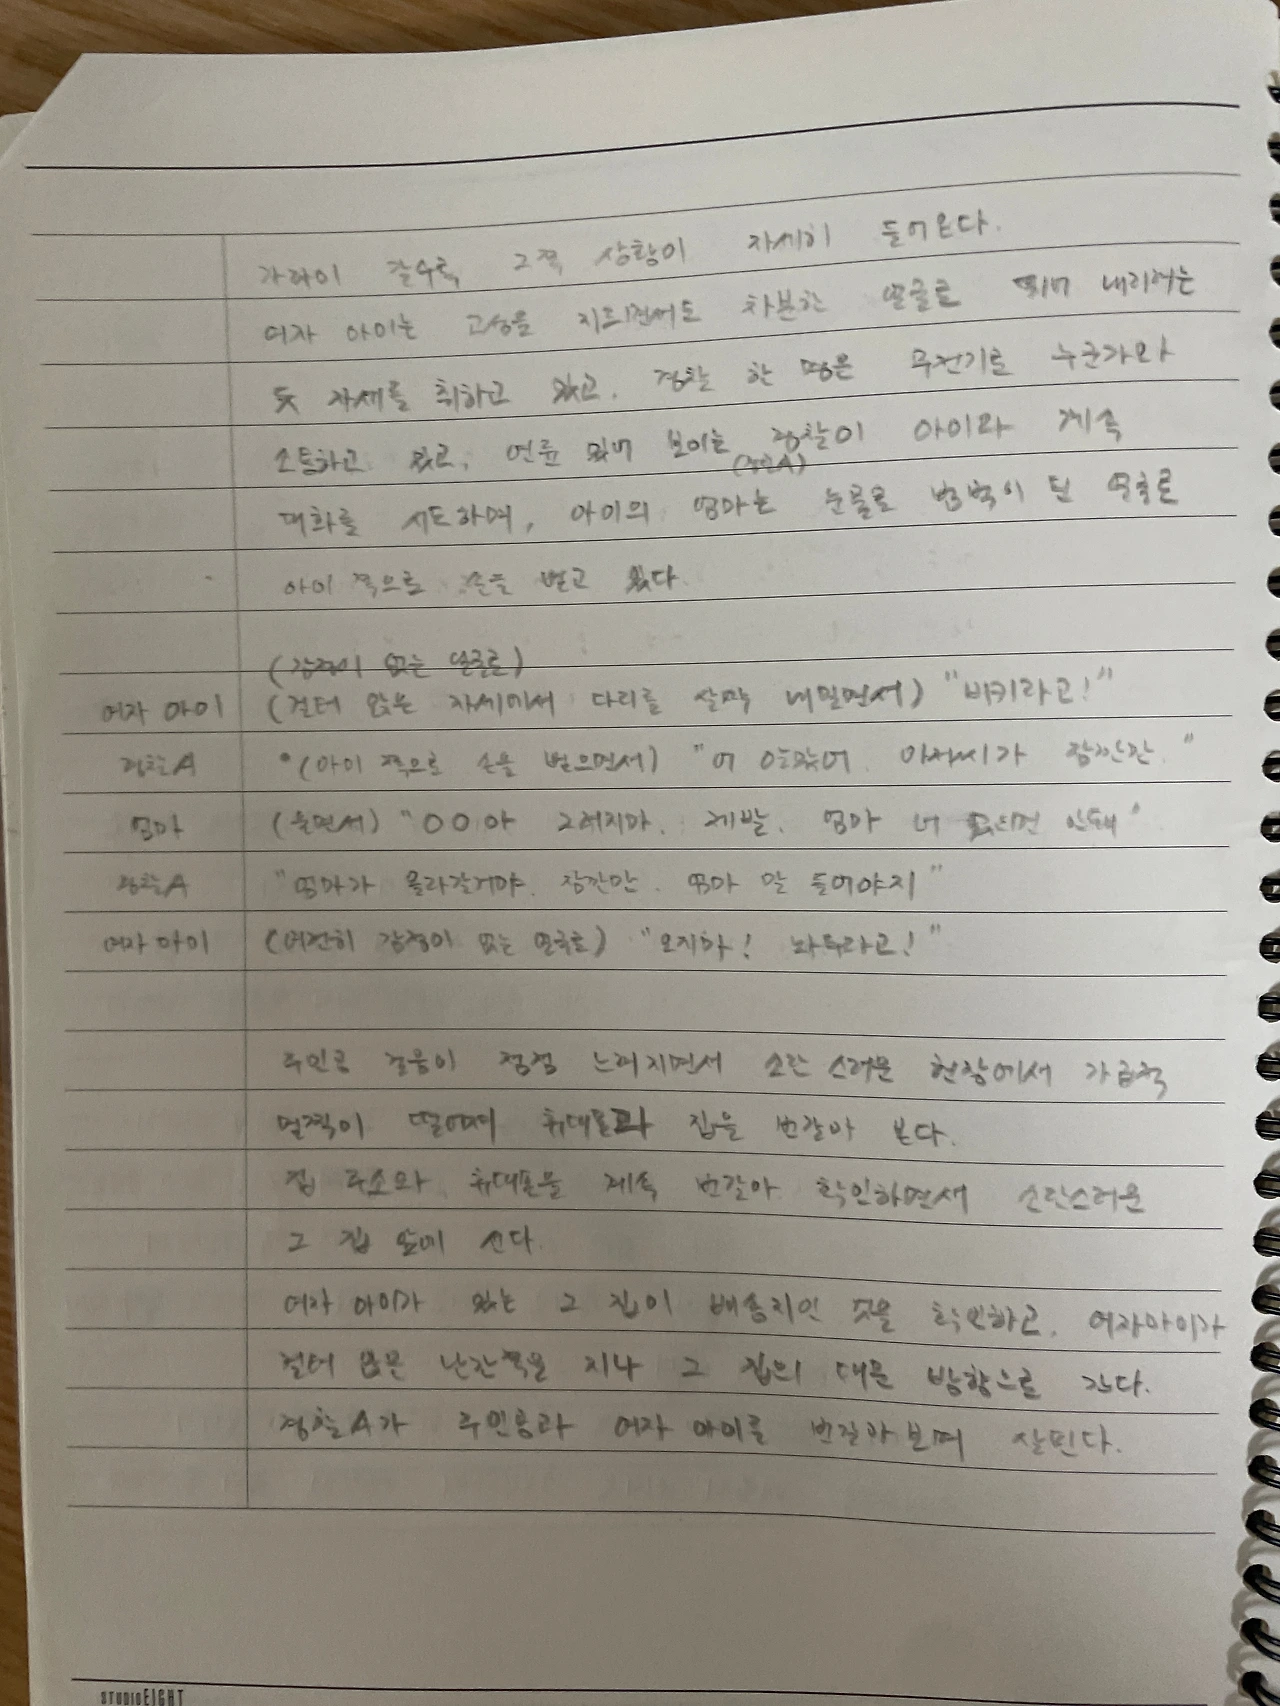 가까이 갈수록 그쪽 상황이 자세히 들어온다.
여자 아이는 고성을 지르면서도 차분한 얼굴로 뛰어 내리려는
듯 자세를 취하고 있고, 경찰 한 명은 무전기로 누군가와
소통하고 있고, 연륜 있어 보이는 경찰이 아이와 계속
(경찰A)
대화를 시도하며, 아이의 엄마는 눈물로 범벅이 된 얼굴로
아이 쪽으로 손을 뻗고 있다.
(감정이 없는 얼굴로)
여자 아이 (걸터 앉은 자세에서 다리를 살짝 내밀면서) "비키라고!"
경찰A (아이 쪽으로 손을 뻗으면서) "어 알았어. 아저씨가 잠깐만."
엄마 (울면서) "OO아 그러지마. 제발. 엄마 너 없으면 안돼"
경찰A "엄마가 올라갈거야. 잠깐만. 엄마 말 들어야지"
여자 아이 (여전히 감정이 없는 얼굴로) "오지마! 놔두라고!"
주인공 걸음이 점점 느려지면서 소란스러운 현장에서 가급적
멀찍이 떨어져 휴대폰과 집을 번갈아 본다.
집 주소와 휴대폰을 계속 번갈아 확인하면새 소란스러운
그 집 앞에 선다.
여자 아이가 있는 그 집이 배송지인 것을 확인하고, 여자아이가
걸터 앉은 난간쪽을 지나 그 집의 대문 방향으로 간다.
경찰A가 주인공과 여자 아이를 번갈아보며 살핀다.
STUDIOEIGHT